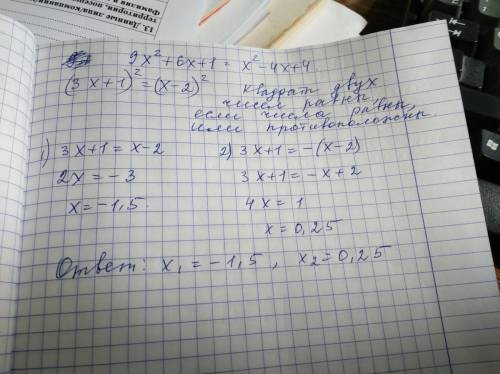 9x² + 6x + 1 = x² - 4x + 4
(3x + 1)² = (x - 2)²
Квадрат двух
чисел равны,
если числа равны,
или противоположны
1) 3x + 1 = x - 2
2x = -3
x = -1,5
2) 3x + 1 = -(x - 2)
3x + 1 = -x + 2
4x = 1
x = 0,25
Ответ: x₁ = -1,5, x₂ = 0,25
13. Данные
Фамилия